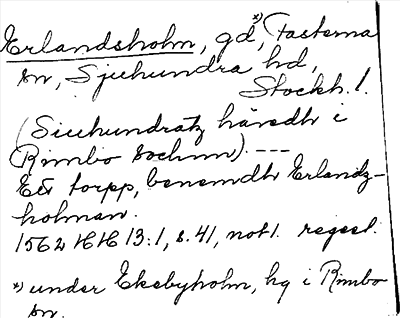 Erlandsholm, gd*), Fasterna
sn, Sjuhundra hd,
Stockh. l.
(Siuhundratz häredh i
Rimbo sochnn). ---
Ett torpp, benemdh Erlandz-
holmen.
1562 HH 13:1, s. 41, not 1. regest.
*) under Ekebyholm, hg i Rimbo
sn.